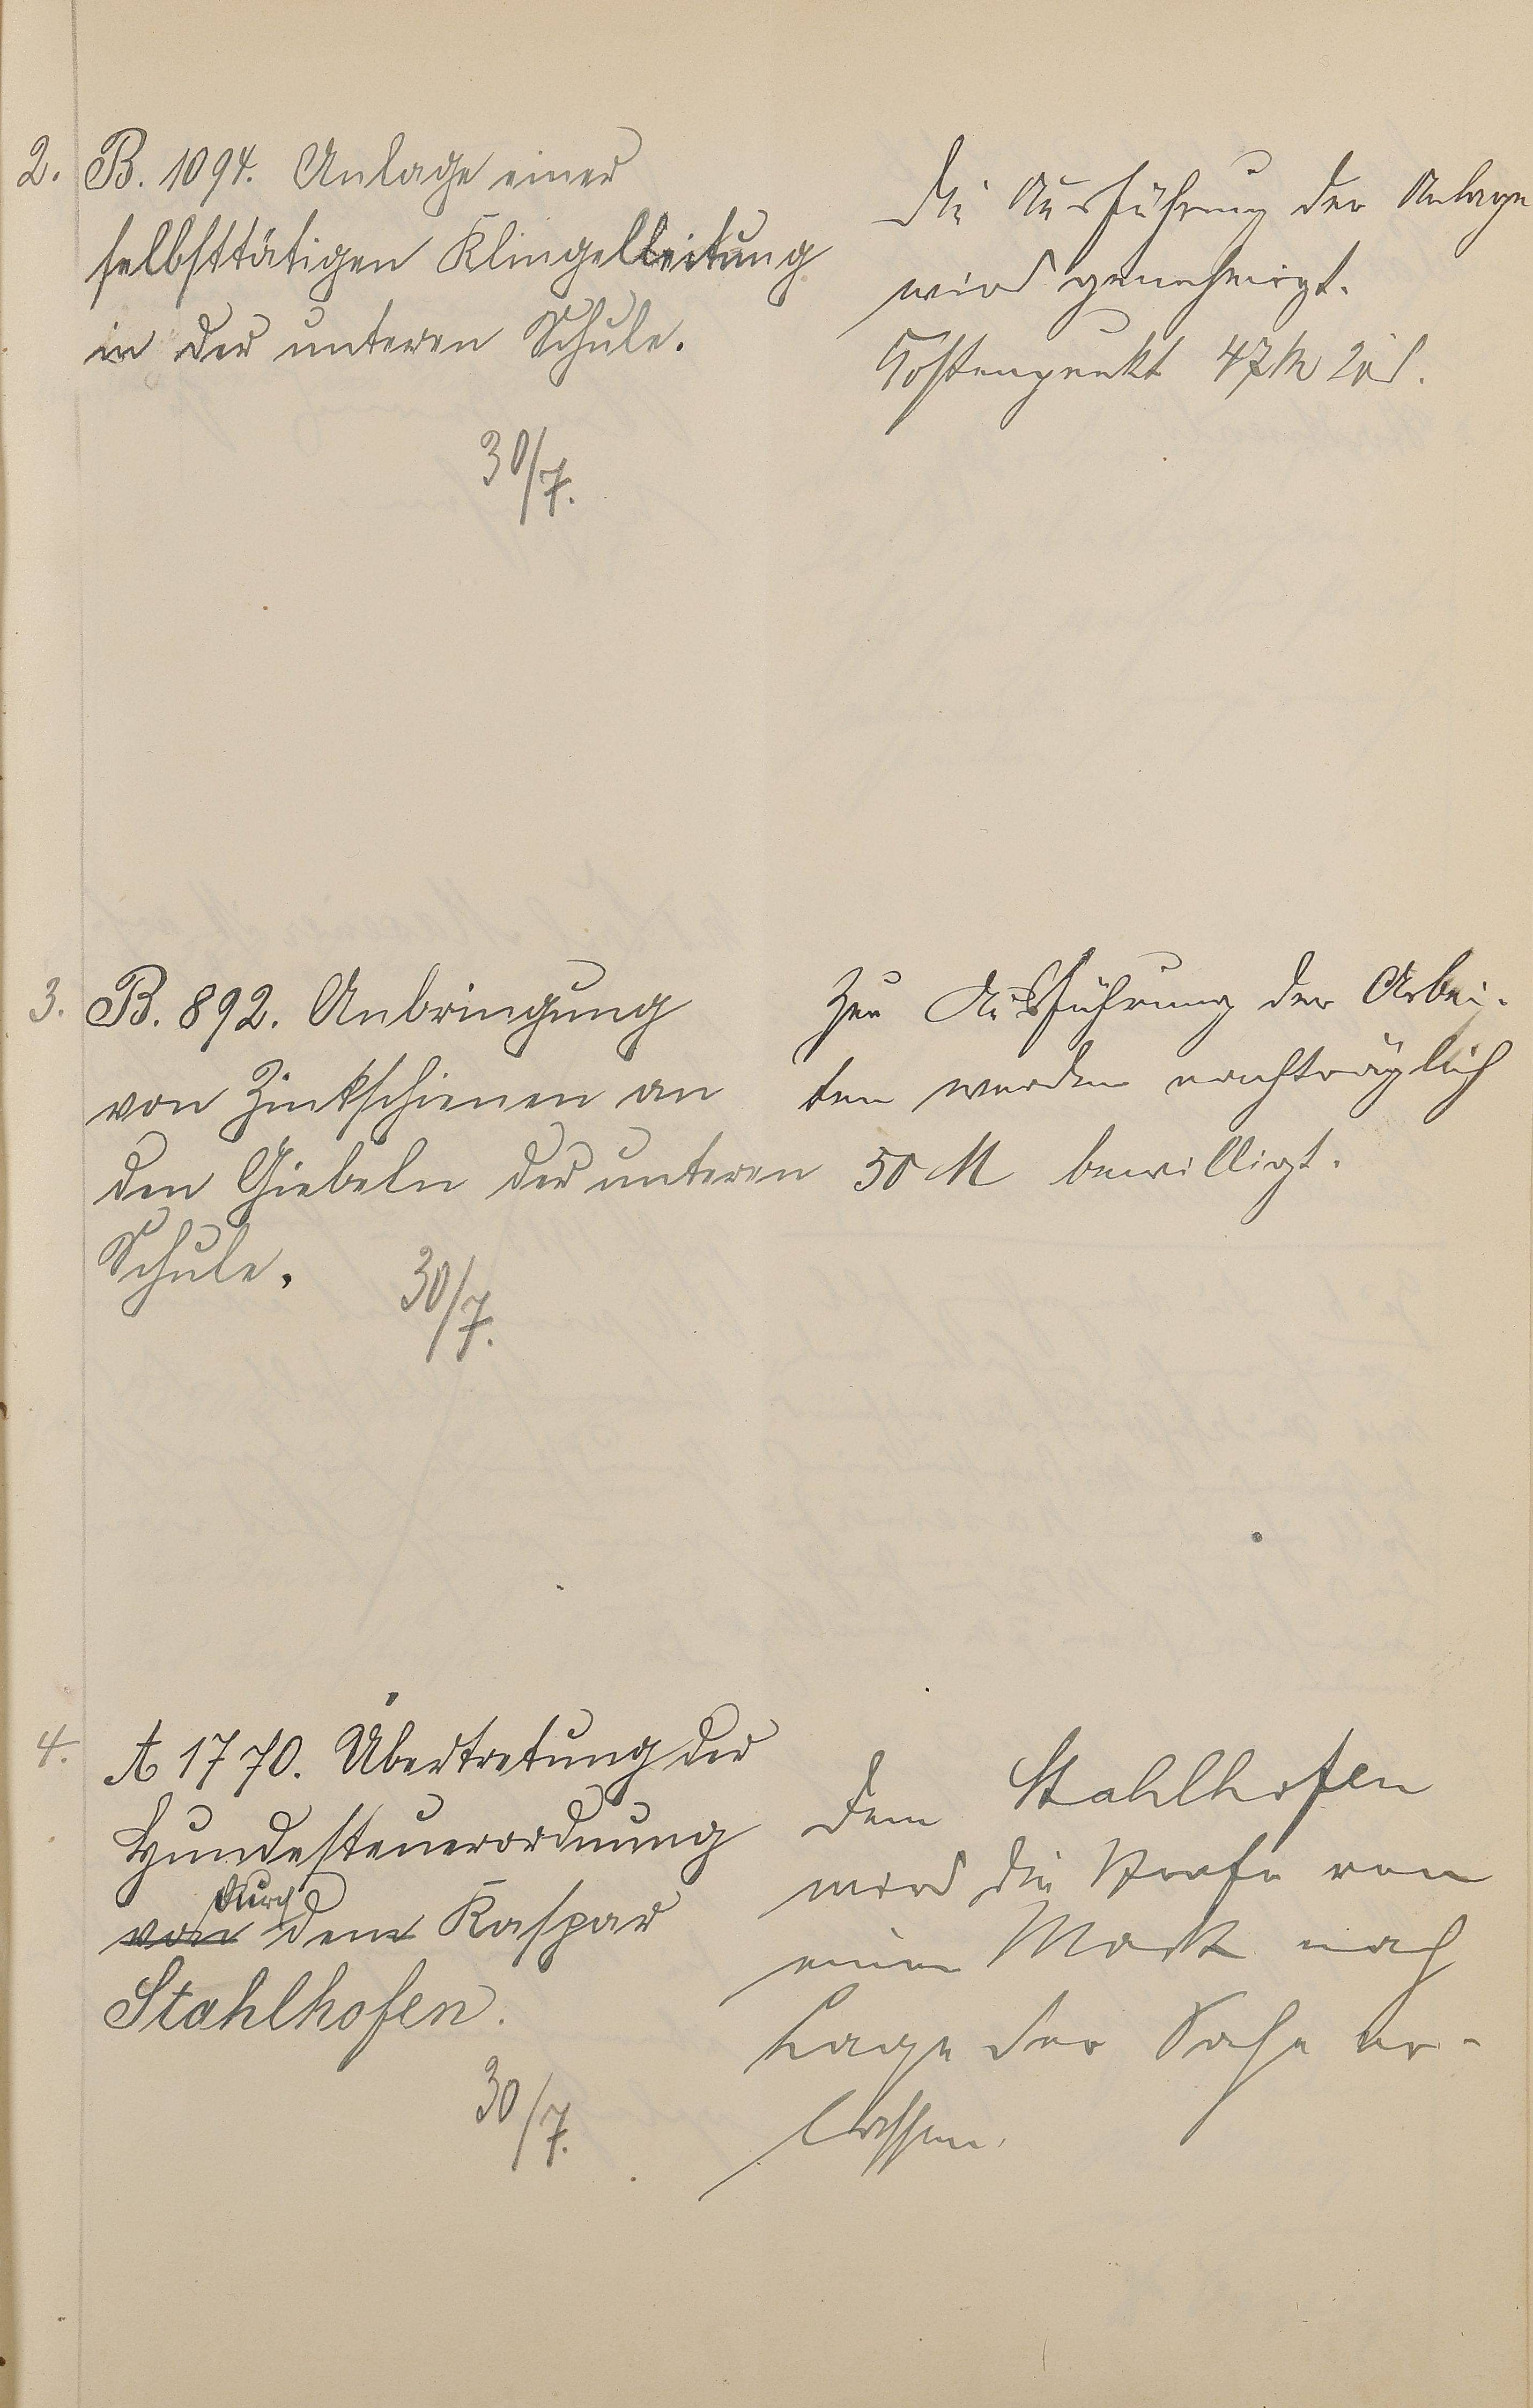 2. B. 1094. Anlage einer
selbsttätigen Klingelleitung
in der unteren Schule.
30/7.
Die Ausführung der Anlage
wird genehmigt.
Kostenpunkt 47 M
3. B. 892. Anbringung
von Zinkschienen an
den Giebeln der unteren
Schule.
30/7.
Zur Ausführung der Arbei-
ten werden nachträglich
50 M bewilligt.
4. A 1770. Übertretung der
Hundesteuerordnung
durch
von den Kaspar
Stahlhofen.
30/7.
Dem Stahlhofen
wird die Strafe von
einer Mark nach
Lage der Sache er-
lassen.